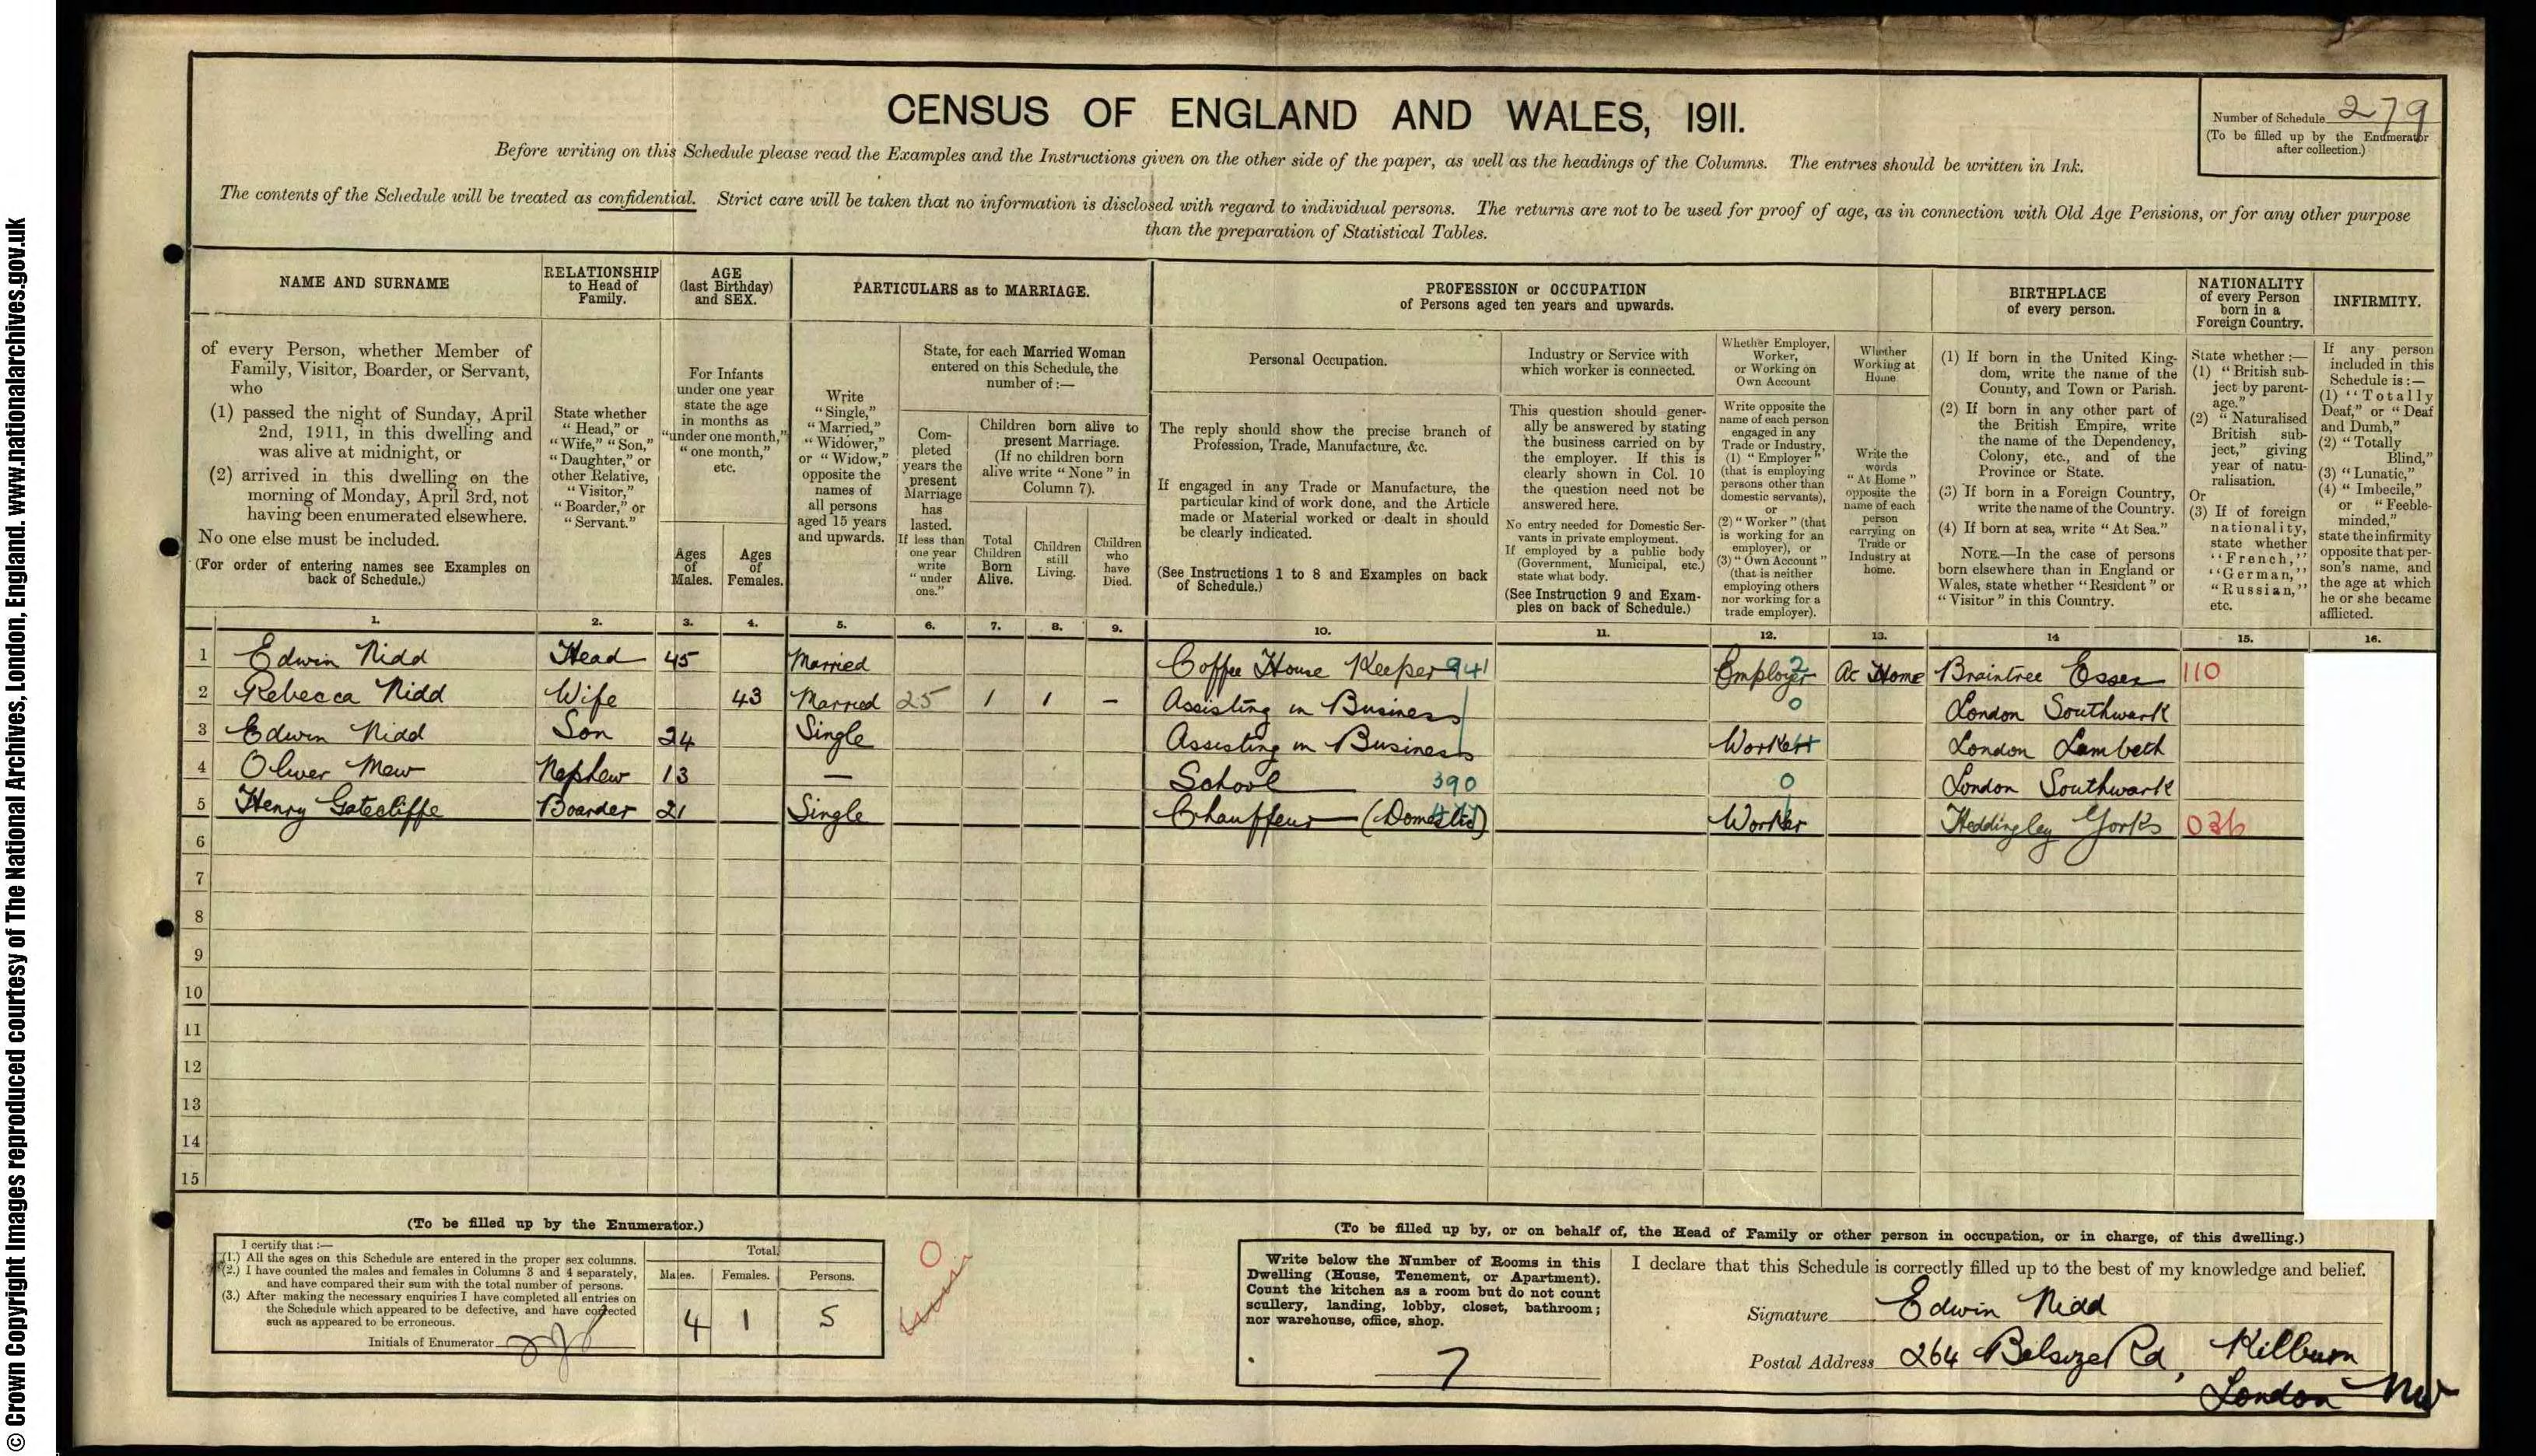 CENSUS OF ENGLAND AND WALES, 1911.
Number of Schedule 279
(To be filled up by the Enumerator
after collection.)
Before writing on this Schedule please read the Examples and the Instructions given on the other side of the paper, as well as the headings of the Columns. The entries should be written in Ink.
The contents of the Schedule will be treated as confidential. Strict care will be taken that no information is disclosed with regard to individual persons. The returns are not to be used for proof of age, as in connection with Old Age Pensions, or for any other purpose
than the preparation of Statistical Tables.
NAME AND SURNAME
of every Person, whether Member of
Family, Visitor, Boarder, or Servant,
who
(1) passed the night of Sunday, April
2nd, 1911, in this dwelling and
was alive at midnight, or
(2) arrived in this dwelling on the
morning of Monday, April 3rd, not
having been enumerated elsewhere.
No one else must be included.
(For order of entering names see Examples on
back of Schedule.)
RELATIONSHIP
to Head of
Family.
State whether
"Head," or
"Wife," "Son,"
"Daughter," or
other Relative,
"Visitor,"
"Boarder," or
"Servant."
AGE
(last Birthday)
and SEX.
For Infants
under one year
state the age
in months as
"under one month,"
"one month,"
etc.
Ages
of
Males.
Ages
of
Females.
PARTICULARS as to MARRIAGE.
Write
"Single,"
"Married,"
"Widower,"
or "Widow,"
opposite the
names of
all persons
aged 15 years
and upwards.
State, for each Married Woman
entered on this Schedule, the
number of :—
Com-
pleted
years the
present
Marriage
has
lasted.
If less than
one year
write
"under
one."
Children born alive to
present Marriage.
(If no children born
alive write "None" in
Column 7).
Total
Children
Born
Alive.
Children
still
Living.
Children
who
have
Died.
PROFESSION or OCCUPATION
of Persons aged ten years and upwards.
Personal Occupation.
The reply should show the precise branch of
Profession, Trade, Manufacture, &c.
If engaged in any Trade or Manufacture, the
particular kind of work done, and the Article
made or Material worked or dealt in should
be clearly indicated.
(See Instructions 1 to 8 and Examples on back
of Schedule.)
Industry or Service with
which worker is connected.
This question should gener-
ally be answered by stating
the business carried on by
the employer. If this is
clearly shown in Col. 10
the question need not be
answered here.
No entry needed for Domestic Ser-
vants in private employment.
If employed by a public body
(Government, Municipal, etc.)
state what body.
(See Instruction 9 and Exam-
ples on back of Schedule.)
Whether Employer,
Worker,
or Working on
Own Account
Write opposite the
name of each person
engaged in any
Trade or Industry,
(1) "Employer"
(that is employing
persons other than
domestic servants),
or
(2) "Worker" (that
is working for an
employer), or
(3) "Own Account"
(that is neither
employing others
nor working for a
trade employer).
Whether
Working at
Home.
Write the
words
"At Home"
opposite the
name of each
person
carrying on
Trade or
Industry at
home.
BIRTHPLACE
of every person.
(1) If born in the United King-
dom, write the name of the
County, and Town or Parish.
(2) If born in any other part of
the British Empire, write
the name of the Dependency,
Colony, etc., and of the
Province or State.
(3) If born in a Foreign Country,
write the name of the Country.
(4) If born at sea, write "At Sea."
NOTE.—In the case of persons
born elsewhere than in England or
Wales, state whether "Resident" or
"Visitor" in this Country.
NATIONALITY
of every Person
born in a
Foreign Country.
State whether :—
(1) "British sub-
ject by parent-
age."
(2) "Naturalised
British sub-
ject," giving
year of natu-
ralisation.
Or
(3) If of foreign
nationality,
state whether
"French,"
"German,"
"Russian,"
etc.
INFIRMITY.
If any person
included in this
Schedule is :—
(1) "Totally
Deaf," or "Deaf
and Dumb,"
(2) "Totally
Blind,"
(3) "Lunatic,"
(4) "Imbecile,"
or "Feeble-
minded,"
state the infirmity
opposite that per-
son's name, and
the age at which
he or she became
afflicted.
1. 2. 3. 4. 5. 6. 7. 8. 9. 10. 11. 12. 13. 14 15. 16.
1 Edwin Nidd Head 45 Married Coffee House Keeper 941 Employer 2 At Home Braintree Essex 110
2 Rebecca Nidd Wife 43 Married 25 1 1 — Assisting in Business 0 London Southwark
3 Edwin Nidd Son 24 Single Assisting in Business Worker London Lambeth
4 Oliver Mew Nephew 13 — School 390 0 London Southwark
5 Henry Gatecliffe Boarder 21 Single Chauffeur (Domestic) Worker Heddingley Yorks 036
6
7
8
9
10
11
12
13
14
15
(To be filled up by the Enumerator.)
I certify that :—
(1.) All the ages on this Schedule are entered in the proper sex columns.
(2.) I have counted the males and females in Columns 3 and 4 separately,
and have compared their sum with the total number of persons.
(3.) After making the necessary enquiries I have completed all entries on
the Schedule which appeared to be defective, and have corrected
such as appeared to be erroneous.
Initials of Enumerator
Total.
Males. Females. Persons.
4 1 5
0
(To be filled up by, or on behalf of, the Head of Family or other person in occupation, or in charge, of this dwelling.)
Write below the Number of Rooms in this
Dwelling (House, Tenement, or Apartment).
Count the kitchen as a room but do not count
scullery, landing, lobby, closet, bathroom;
nor warehouse, office, shop.
7
I declare that this Schedule is correctly filled up to the best of my knowledge and belief.
Signature Edwin Nidd
Postal Address 264 Belsize Rd, Kilburn
London NW
© Crown Copyright Images reproduced courtesy of The National Archives, London, England. www.nationalarchives.gov.uk